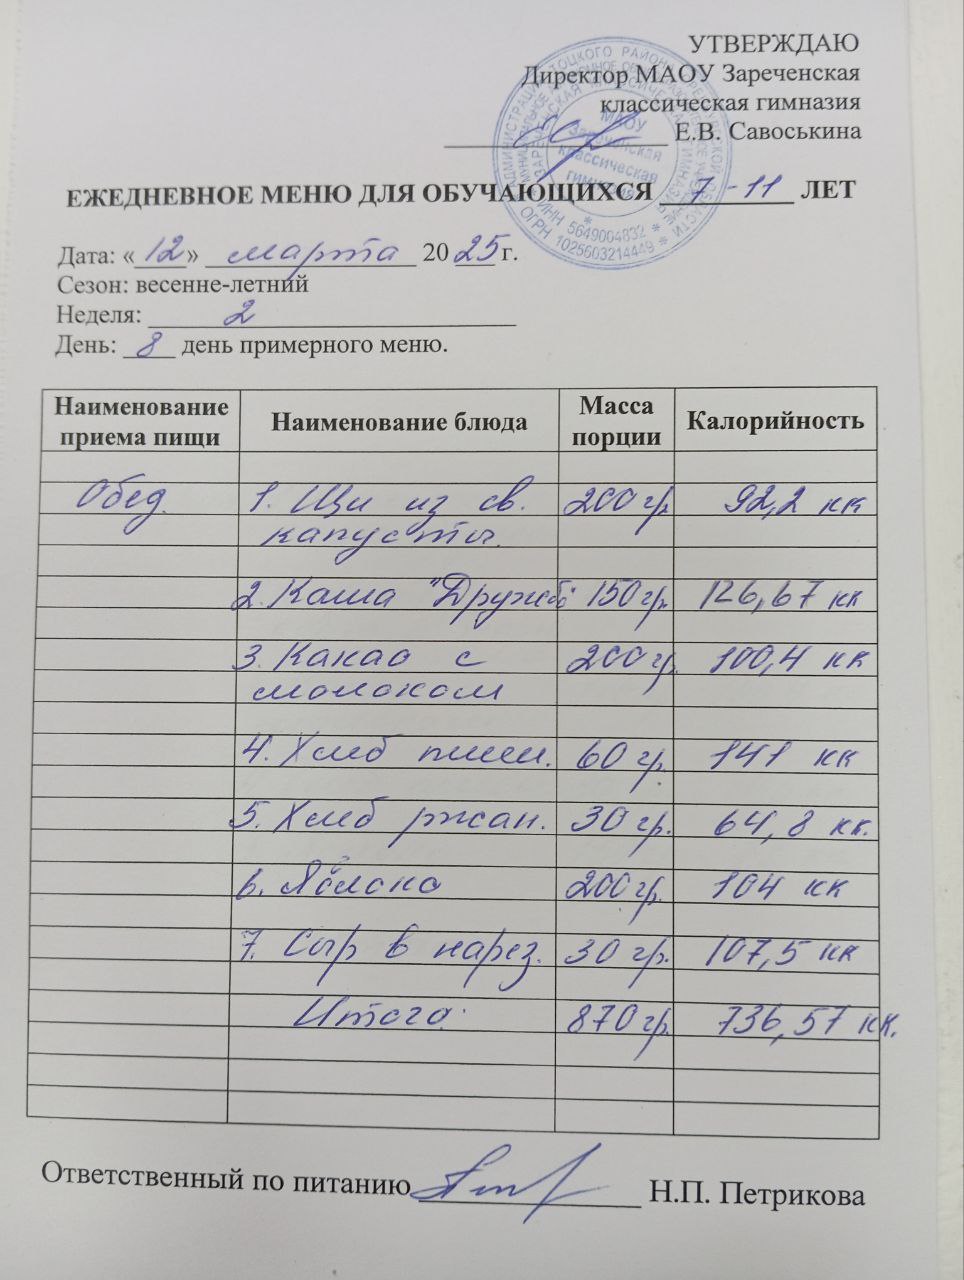 УТВЕРЖДАЮ
Директор МАОУ Зареченская
классическая гимназия
Е.В. Савоськина
МАОУ
Зареченская
классическая
гимназия
ИНН 5649004832
ОГРН 1025603214449
ЕЖЕДНЕВНОЕ МЕНЮ ДЛЯ ОБУЧАЮЩИХСЯ 7-11 ЛЕТ
Дата: «12» марта 2025 г.
Сезон: весенне-летний
Неделя: 2
День: 8 день примерного меню.
Наименование приема пищи Наименование блюда Масса порции Калорийность
Обед. 1. Щи из св. 200 гр 92,2 кк
капусты.
2. Каша "Дружба" 150 гр. 126,67 кк
3. Какао с 200 гр. 100,4 кк
молоком
4. Хлеб пшен. 60 гр. 141 кк
5. Хлеб ржан. 30 гр. 64,8 кк.
6. Яблоко 200 гр. 104 кк
7. Сыр в нарез. 30 гр. 107,5 кк
Итого: 870 гр. 736,57 кк.
Ответственный по питанию Н.П. Петрикова